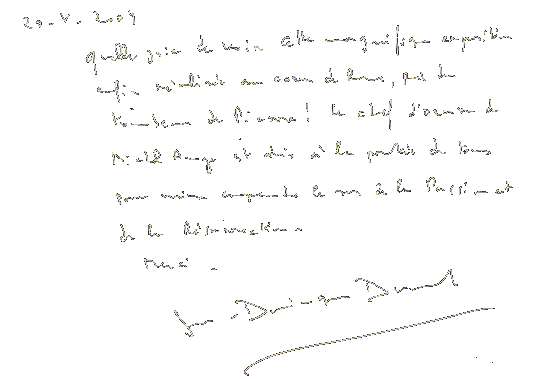 20.V.2009
Quelle joie de voir cette magnifique exposition
enfin réalisée au cœur de Rome, près du
! Le chef d'œuvre de
Michel Ange est mis à la portée de tous
pour mieux comprendre le sens de la Passion et
de la Résurrection.
Merci.
Dominique